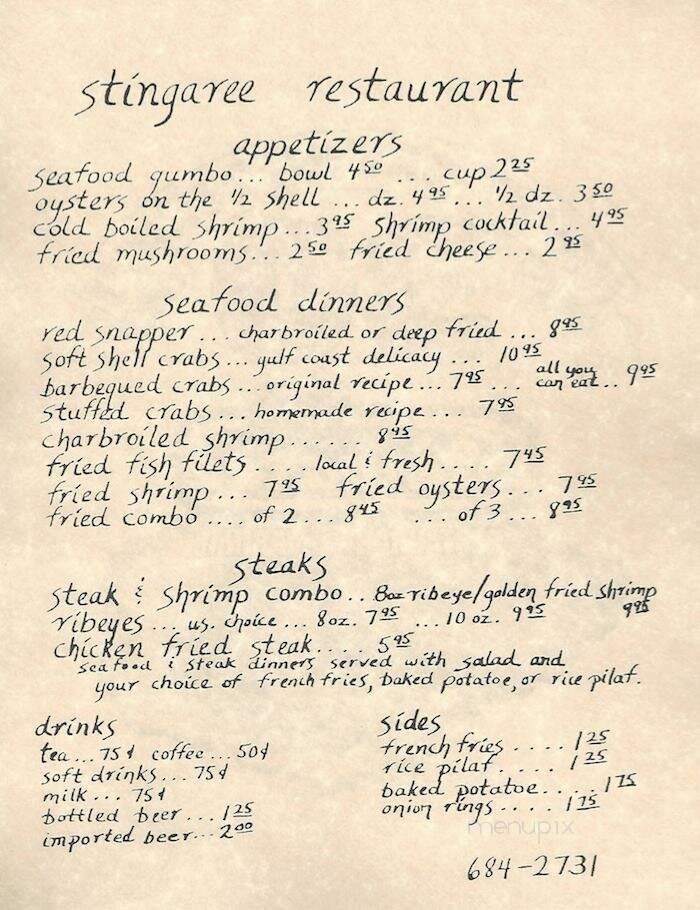 stingaree restaurant
appetizers
seafood gumbo... bowl 4 50 ... cup 2 25
oysters on the 1/2 shell ... dz. 4 95 ... 1/2 dz. 3 50
cold boiled shrimp ... 3 95 shrimp cocktail ... 4 95
fried mushrooms... 2 50 fried cheese ... 2 95
seafood dinners
red snapper ... charbroiled or deep fried ... 8 95
soft shell crabs ... gulf coast delicacy ... 10 95
barbequed crabs ... original recipe ... 7 95 ... all you can eat .. 9 95
stuffed crabs ... homemade recipe ... 7 95
charbroiled shrimp ...... 8 95
fried fish filets .... local & fresh .... 7 45
fried shrimp ... 7 95 fried oysters ... 7 95
fried combo .... of 2 ... 8 45 ... of 3 ... 8 95
steaks
steak & shrimp combo .. 8oz ribeye/golden fried shrimp
9 95
ribeyes ... us. choice ... 8 oz. 7 95 ... 10 oz. 9 95
chicken fried steak .... 5 95
seafood & steak dinners served with salad and
your choice of french fries, baked potatoe, or rice pilaf.
drinks
tea ... 75¢ coffee ... 50¢
soft drinks ... 75¢
milk ... 75¢
bottled beer ... 1 25
imported beer ... 2 00
sides
french fries .... 1 25
rice pilaf ..... 1 25
baked potatoe .... 1 75
onion rings .... 1 75
menupix
684-2731